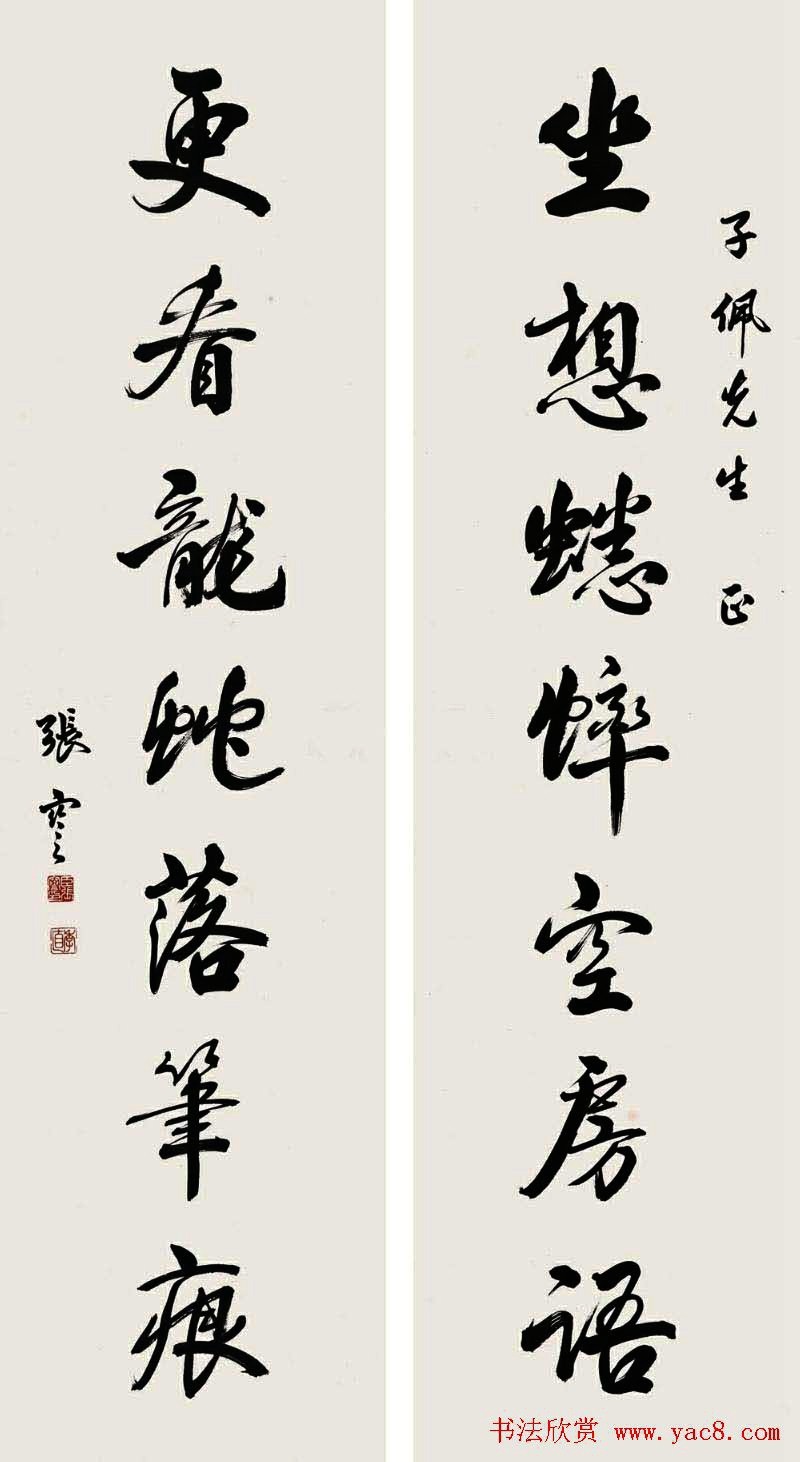 子佩先生 正
坐想蟋蟀空房語
更看龍蛇落筆痕
張謇
張謇
季直
书法欣赏 www.yac8.com